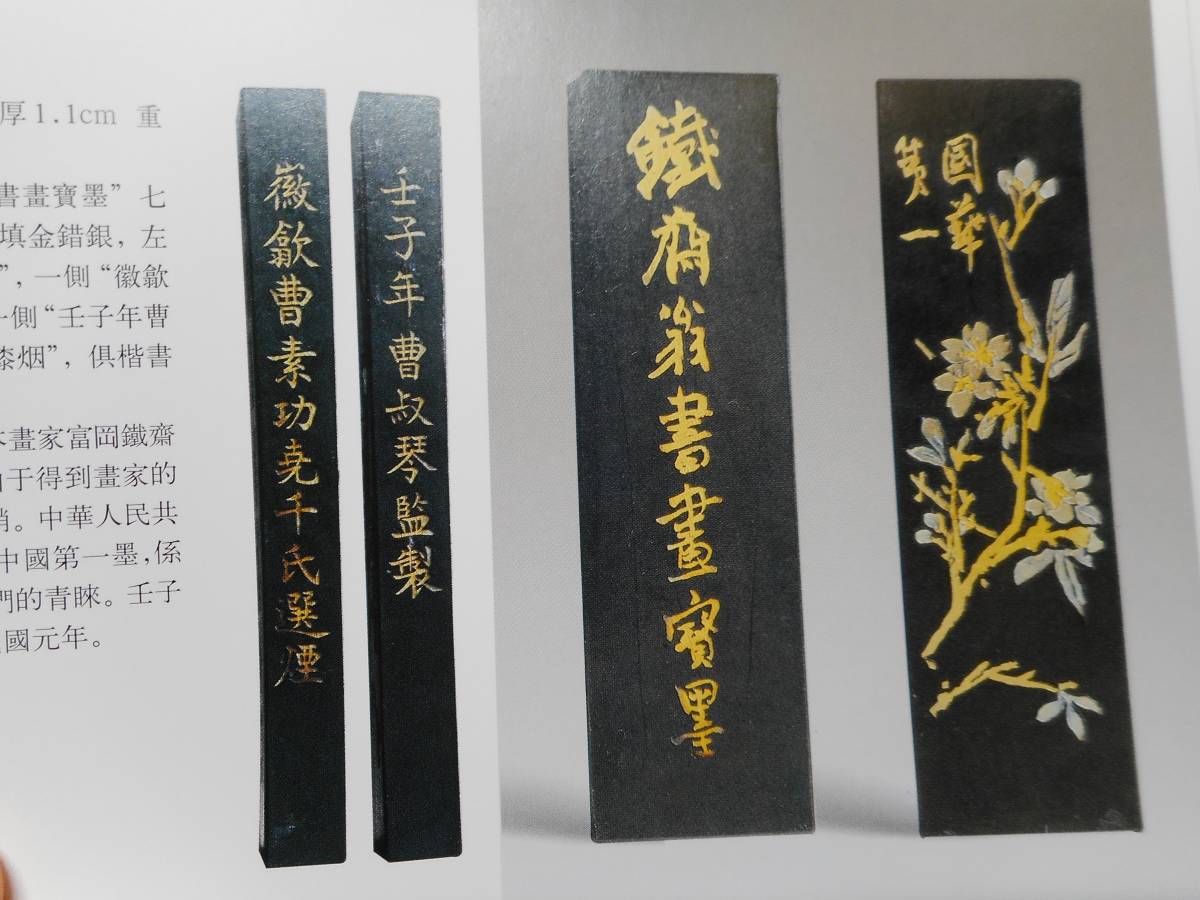 厚1.1cm 重
書畫寶墨” 七
填金錯銀, 左
”, 一側“徽歙
一側“壬子年曹
漆烟”, 俱楷書
本畫家富岡鐵齋
由于得到畫家的
銷。中華人民共
中國第一墨,係
們的青睞。壬子
國元年。
徽歙曹素功堯千氏選煙
壬子年曹叔琴監製
鐵齋翁書畫寶墨
國華
第一